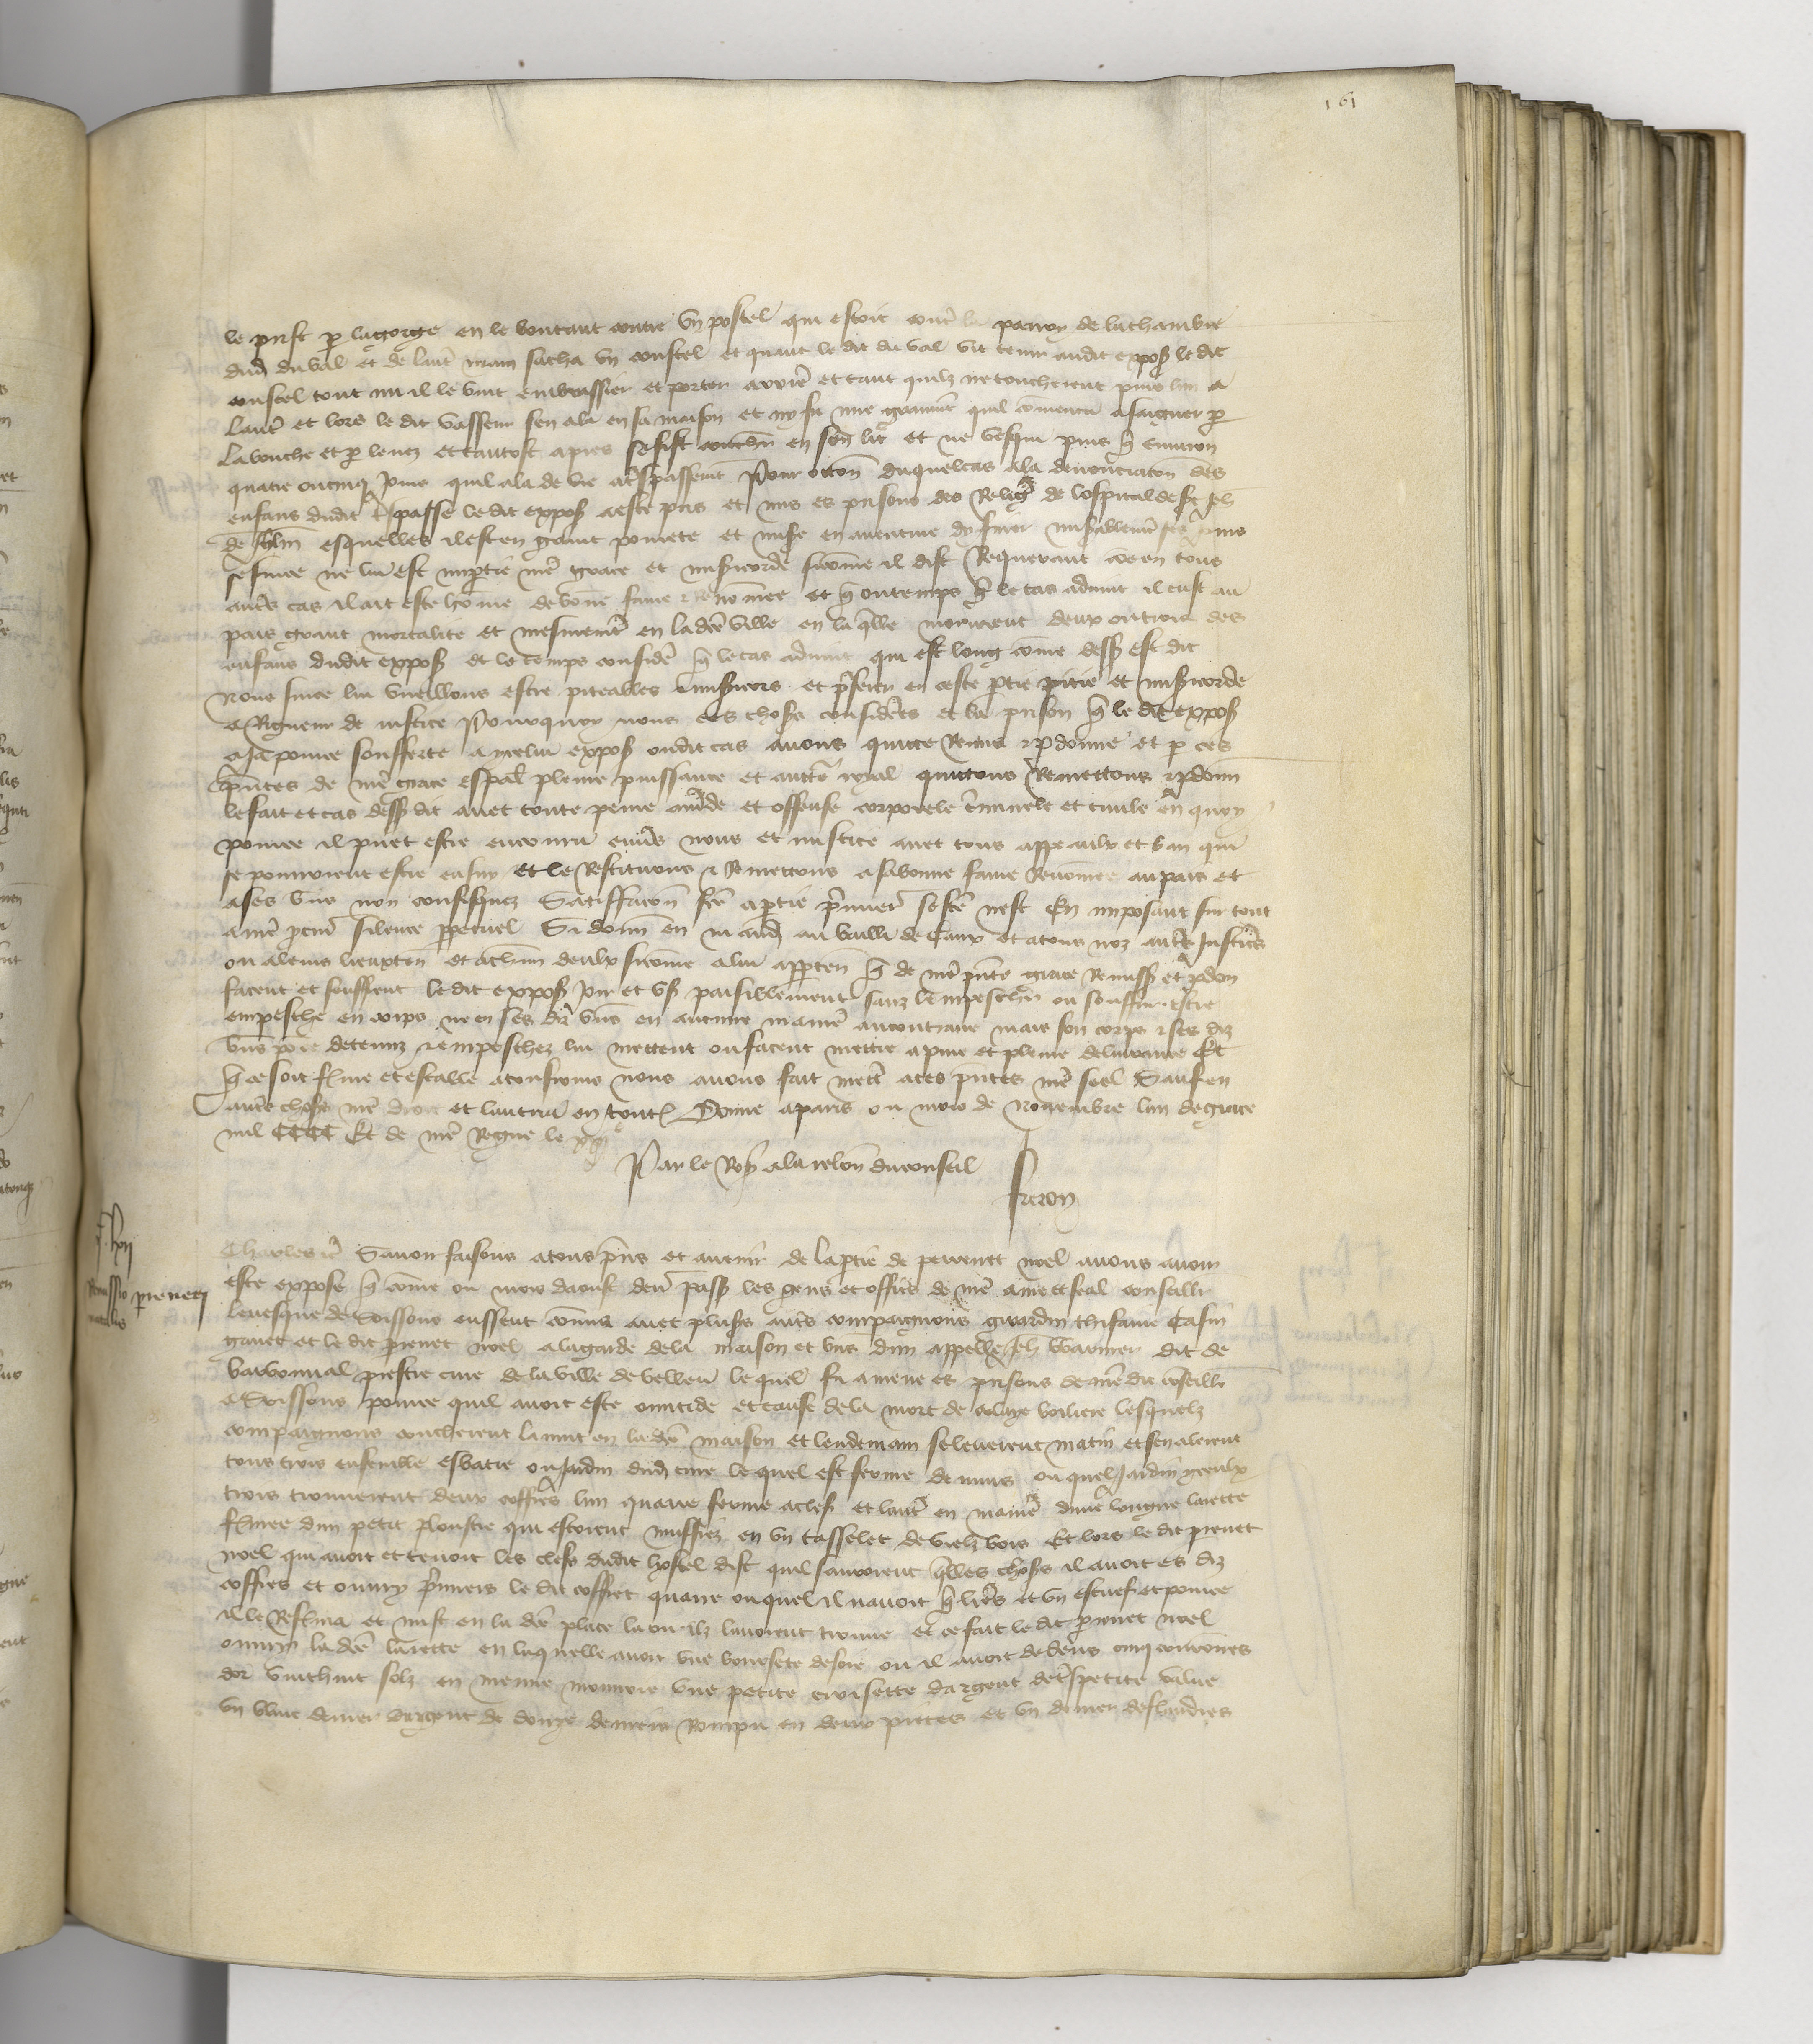 161
le prist p la gorge en le boutant contre vn postel qui estoit contre la paroy de la chambre
dud duval et de laut main sacha vn coustel et quant le dit du val vit tenir audit expos le dit
coustel tout nu il le vint embrassier et porter arrie et tant quilz ne toucherent puis lun a
laut et lors le dit vasseur sen ala en sa maison et ny fu mie gramnt quil comenca a saigner p
la bouche et p le nez et tantost apres se fist couchier en son lit et ne vesqui puis q environ
quatre ou cinq jours quil ala de vie a trespassement Pour occon duquel cas a la denonciaton des
enfans dudit trespasse le dit expos a este pris et mis es prisons des Relig de lospital de st Jeh
de Jhlm esquelles il est en grant povrete et mise en aventure dy finer misablement ses jours
se sur ce ne lui est impartie nre grace et misicorde sicome il dist Requerant come en tous
autres cas il ait este home de bone fame renommee et q ou temps q le cas advint il eust au
pais grant mortalite et mesmemt en lade ville en la qlle morurent deux ou trois des
enfans dudit expos et le temps consider q le cas advint qui est long come dess est dit
Nous sur ce lui vueillons estre piteables misicors et pferer en ceste ptie pitie et misicorde
a Rigueur de justice Pourquoy nous ces choses considerees et la prison q le dit expos
a ja pour ce soufferte a icelui expos oudit cas avons quitte Remis pdonne et p ces
pntes de nre grace espal pleine puissance et auctte royal quittons Remettons pdonn
le fait et cas dess dit avec toute peine amde et offense corporele criminele et civile en quoy
pour ce il puet estre encouru envs nous et justice avec tous appeaulx et ban qui
se pourroient estre ensuy et le Restituons Remettons a sa bonne fame Renomee au pais et
a ses biens non confisquez Satisffacon fce a partie primier se fce nest En imposant sur tout
a nre pcur silence ppetuel Si donn en mand au bailli de Caux et a tous noz autres Justic
ou a leurs lieuxten et a chun deulx sicome a lui apprten q de nre pnte grace Remiss et pdon
facent et seuffrent le dit expos joir et us paisiblement sanz le empeschier ou souffrir estre
empesche en corps ne en ses diz biens en aucune manie au contraire mais son corps ses diz
biens pour ce detenuz empeschez lui mettent ou facent mettre a plaine et pleine delivrance Et
q ce soit ferme et estable a tousjours nous avons fait mett a ces pntes nre seel Sauf en
autre chose nre droit et lautrui en toutes Donne a paris ou mois de Novembre lan de grace
mil CCCC Et de nre Regne le
Par le Roy a la relon du conseil
Freron
Remissio pierreti noel
Charles etc Savoir faisons a tous pns et avenir de la ptie de perrenet noel avons avoir
este expose q come ou mois daoust denr pass les gens et offics de nre ame et feal conseillr
levesque de Soissons eussent comis avec plus autres compaignons girardin thifaine Casin
ganet et le dit pienet noel a la garde de la maison et biens dun appelle Jeh Warnier dit de
barbonval prestre cure de la ville de velleu le quel fu amene es prisons de nre dit conseillr
a Soissons pour ce quil avoit este omicide et cause de la mort de colaye voliere lesquelz
compaignons coucherent la nuit en lade maison et lendemain se leverent matin et sen alerent
tous trois ensemble esbatre ou jardin dud cure le quel est ferme de murs ou quel jardin yceulx
trois trouverent deux coffres lun quarre ferme a clef et laut en manie dune longue laiette
fermee dun petit ploustre qui estoient mussiez en vn tasselet de viel bois Et lors le dit pienet
noel qui avoit et tenoit les clefs dudit hostel dist quil sauroient qlles choses il avoit es diz
coffres et ouvry primiers le dit coffret quarre ouquel il navoit q lres et vn estuef et pour ce
il le Reserra et mist en la de place la ou ilz lavoient trouve Et ce fait le dit pienet noel
ouvri lade laiette en laquelle avoit vne boursete de soie ou il avoit dedens cinq couronnes
dor vint huit solz en menue monnoie vne petite croisette dargent de tres petite value
vn blanc denier dargent de douze deniers Rompu en deux pieces et vn denier de flandres